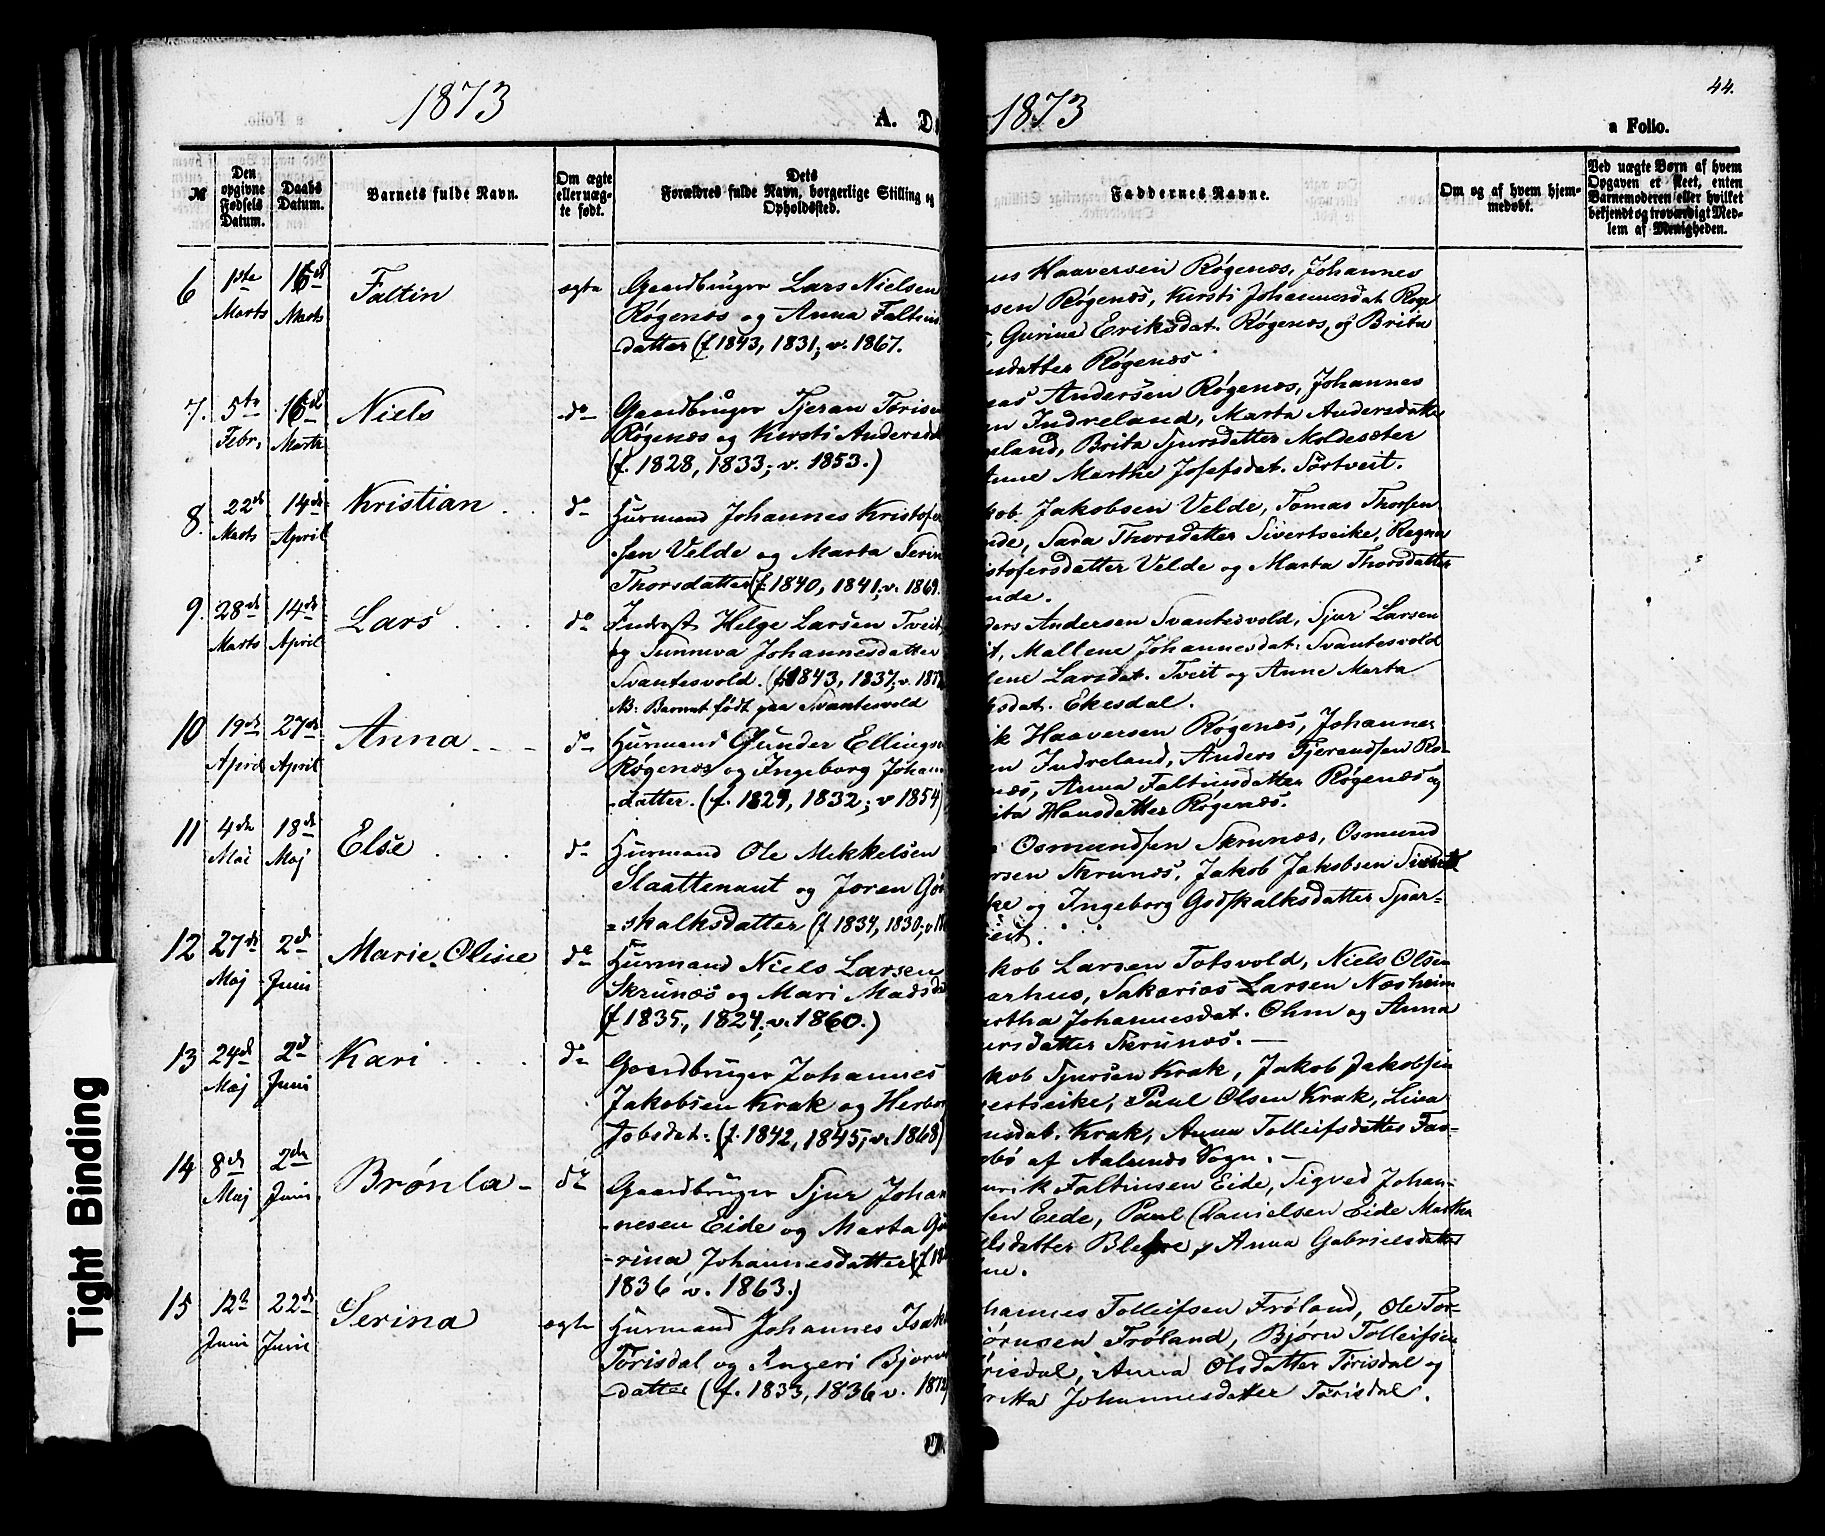 44.
1873
A. D
1873
a Folio.
№
Den opgivne Fødsels Datum.
Daabs Datum.
Barnets fulde Navn.
Om ægte eller uægte født.
Dets Forældres fulde Navn, borgerlige Stilling og Opholdssted.
Faddernes Navne.
Om og af hvem hjemmedøbt.
Ved uægte Børn af hvem Opgaven er skeet, enten Barnemoderen eller hvilket bekjendt og troværdigt Medlem af Menigheden.
6 1ste Marts 16de Marts Faltin ægte
Gaardbruger Lars Nielsen
Røgenæs og Anna Faltins
datter (f. 1843, 1831; v. 1867.
Haaversen Røgenæs, Johannes
sen Røgenæs, Kirsti Johannesdat. Røge
Gurine Eriksdat. Røgenæs, og Brita
sdatter Røgenæs
7. 5te Febr. 16de Marts Niels do
Gaardbruger Tjeran Tøris
Røgenæs og Kirsti Andersd
(f. 1828, 1833; v. 1853.)
eas Andersen Røgenæs, Johannes
en Indreland, Marta Andersdatter
eland, Brita Sjursdatter Moldesæter
Anne Marthe Josefsdat. Sørtveit.
8. 22de Marts 14de April Kristian do
Huusmand Johannes Kristofer
sen Velde og Marta Serin
Thorsdatter (f. 1840, 1841; v. 1869.
kob. Jakobsen Velde, Tomas Thorsen
nde, Sara Thorsdatter Sivertseike, Ragna
istofersdatter Velde og Marta Thorsdatter
nde.
9. 28de Marts 14de April Lars do
Inderst Helge Larsen Tveit,
og Sunneva Johannesdatter
Svantesvold. (f. 1843, 1837; v. 187
NB: Barnet født paa Svantesvold
ders Andersen Svantesvold, Sjur Larsen
it, Mallene Johannesdat. Svantesvold
lene Larsdat. Tveit og Anne Marta
sdat. Ekesdal.
10 19de April 27de April Anna do
Huusmand Gunder Ellings
Røgenæs og Ingeborg Johan
datter. (f. 1829, 1832; v 1854)
ik Haaversen Røgenæs, Johannes
en Indreland, Anders Tjerandsen Rø-
næs, Anna Faltinsdatter Røgenæs og
ita Hansdatter Røgenæs.
11 4de Mai 18de Maj Else do
Huusmand Ole Mikkelsen
Slaattenaut og Joren Go
skalksdatter (f. 1834, 1830; v. 18
Osmundsen Skrunæs, Osmund
rsen Skrunæs, Jakob Jakobsen Sivert
ke og Ingeborg Godskalksdatter Spar-
veit.
12 27de Maj 2de Juni Marie Oline do
Huusmand Niels Larsen
Skrunæs og Mari Madsd
(f 1835, 1824; v. 1860.)
akob Larsen Totsvold, Niels Olsen
arhus, Sakarias Larsen Næsheim
artha Johannesdat. Ohm og Anna
ursdatter Skrunæs. —
13 24de Maj 2de Juni Kari do
Gaardbruger Johannes
Jakobsen Krak og Herbor
Jobsdat: (f. 1842, 1845; v. 1868)
akob Sjursen Krak, Jakob Jakobsen
vertseike, Paul Olsen Krak, Lisa
nsdat. Krak, Anna Tolleifsdatter
bø af Aalunds Sogn. —
14 8de Maj 2den Juni Brønla do
Gaardbruger Sjur Johan
nesen Eide og Marta Gu
rina Johannesdatter (f. 18
1836 v. 1863.)
nrik Faltinsen Eide, Sigved Johan-
sen Eide, Paul Danielsen Eide Martha
lsdatter og Anna Gabrielsdatter
ne.
15 12te Juni 22de Juni Serina ægte
Huusmand Johannes Isak
Tørisdal og Ingeri Bjorn
datter (f. 1833, 1836 v. 1872
hannes Tolleifsen Frøland, Ole Tor-
jørnsen Frøland, Bjørn Tolleifsen
ørisdal, Anna Olsdatter Tørisdal og
ritta Johannesdatter Tørisdal.
Tight Binding